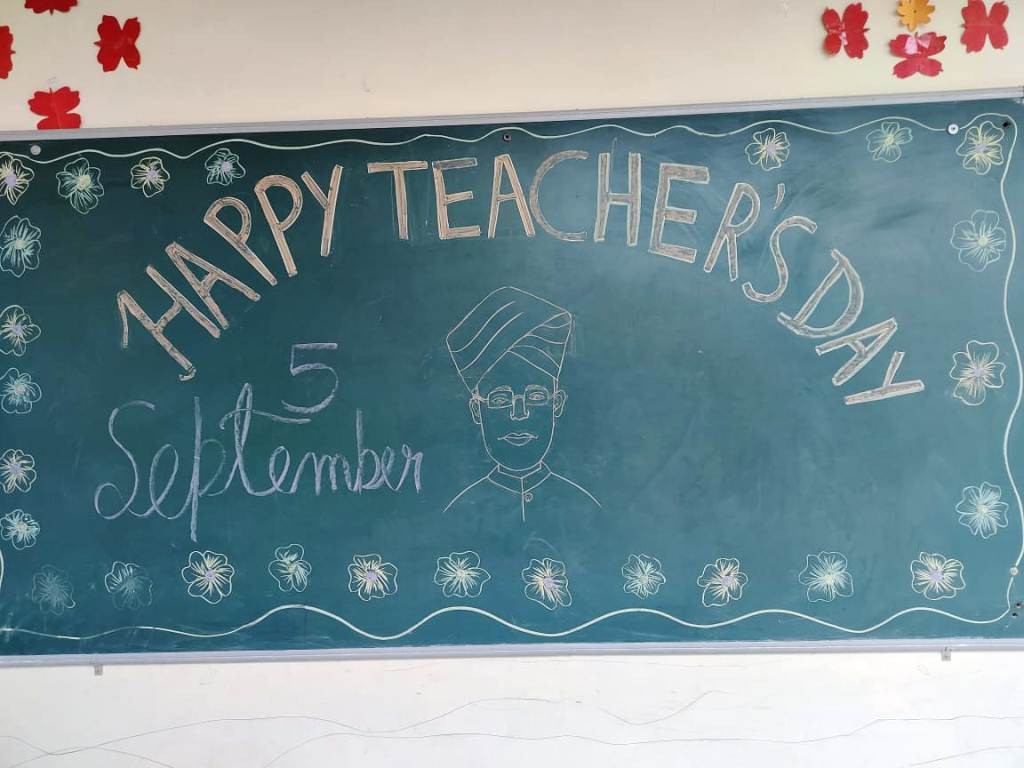 HAPPY TEACHER'S DAY
5
September